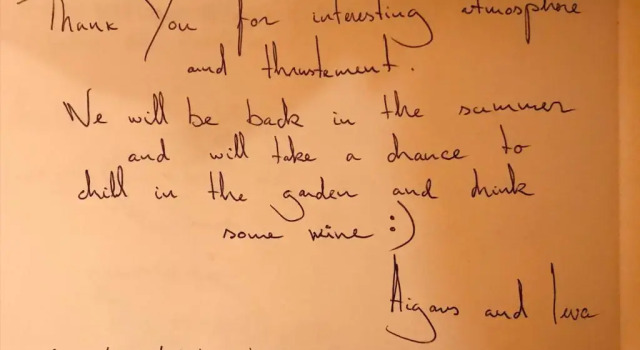 Thank You for interesting atmosphere
and thrustement.
We will be back in the summer
and will take a chance to
chill in the garden and drink
some wine :)
Aigars and Ieva